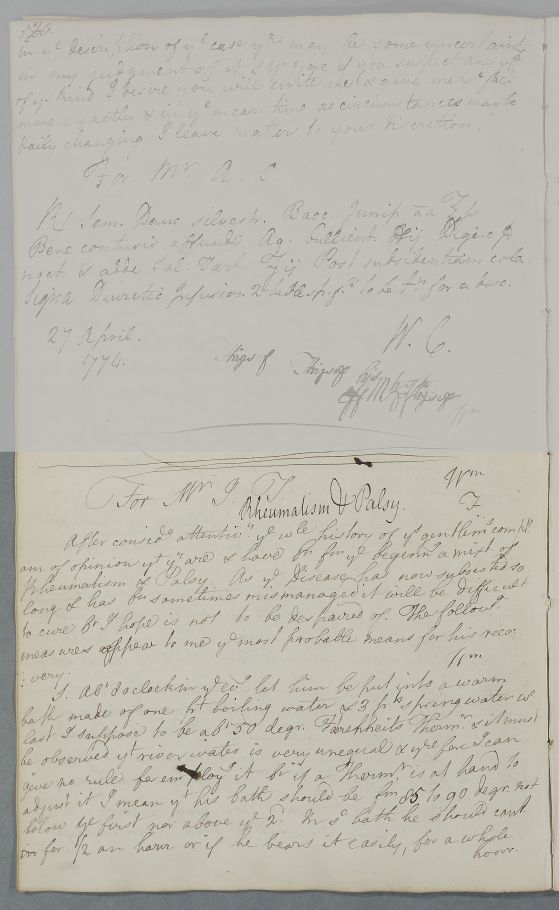 120.
in yᵉ description of yᵉ case yʳᵉ may be some uncertainty
in my judgment of it if you suspect any
of yˢ kind I desire you will write me & give me yᵉ
more exactly & in yᵉ mean time as circumstances may be
daily changing I leave matter to your discretion.
For Mʳ. A. C.
℞ Sem. Dauc. silvestr. Bacc. Junip. aa ℥ſs
Bene contusis affunde Aq. bullient. ℔ij Digere p
noct. & adde Sal. Tart. ʒij Post subsidentiam cola.
Signa Diuretic Infusion. 2 tablesp.fˡˢ to be tⁿ for a dose.
27 April.
1774.
W. C.
Thigs of Thigs of
Wm
For Mʳ J. T. Wᵐ
Rheumatism & Palsy.
After considᵍ attentivˡʸ yᵉ wole history of yˢ gentlemˢ complᵗ
am of opinion yᵗ yʳ are & have bⁿ fm yᵉ beginnᵍ a mixt of
Rheumatism & Palsy. As yᵉ Disease has now subsisted so
long & has bⁿ sometimes mismanaged it will be difficult
to cure bᵗ I hope is not to be despaired of. The followᵍ
measures appear to me yᵉ most probable means for his reco:
:very. Wm
1. Abᵗ 8 oclock in yᵉ evᵍ let him be put into a warm
bath made of one pᵗ boiling water & 3 pᵗˢ spring water wᶜ
last I suppose to be abᵗ 50 degr. Farenheits Thermʳ & it must
be observed yᵗ river water is very unequal & yʳᵉfore I can
give no rule for employᵍ it bᵗ if a Thermʳ is at hand to
adjust it I mean yᵗ his bath should be fm 85 to 90 degr. not
below yᵉ first nor above yᵉ 2ᵈ. In sᵈ bath he should cont
in for ½ an hour or if he bears it easily, for a whole
hour.